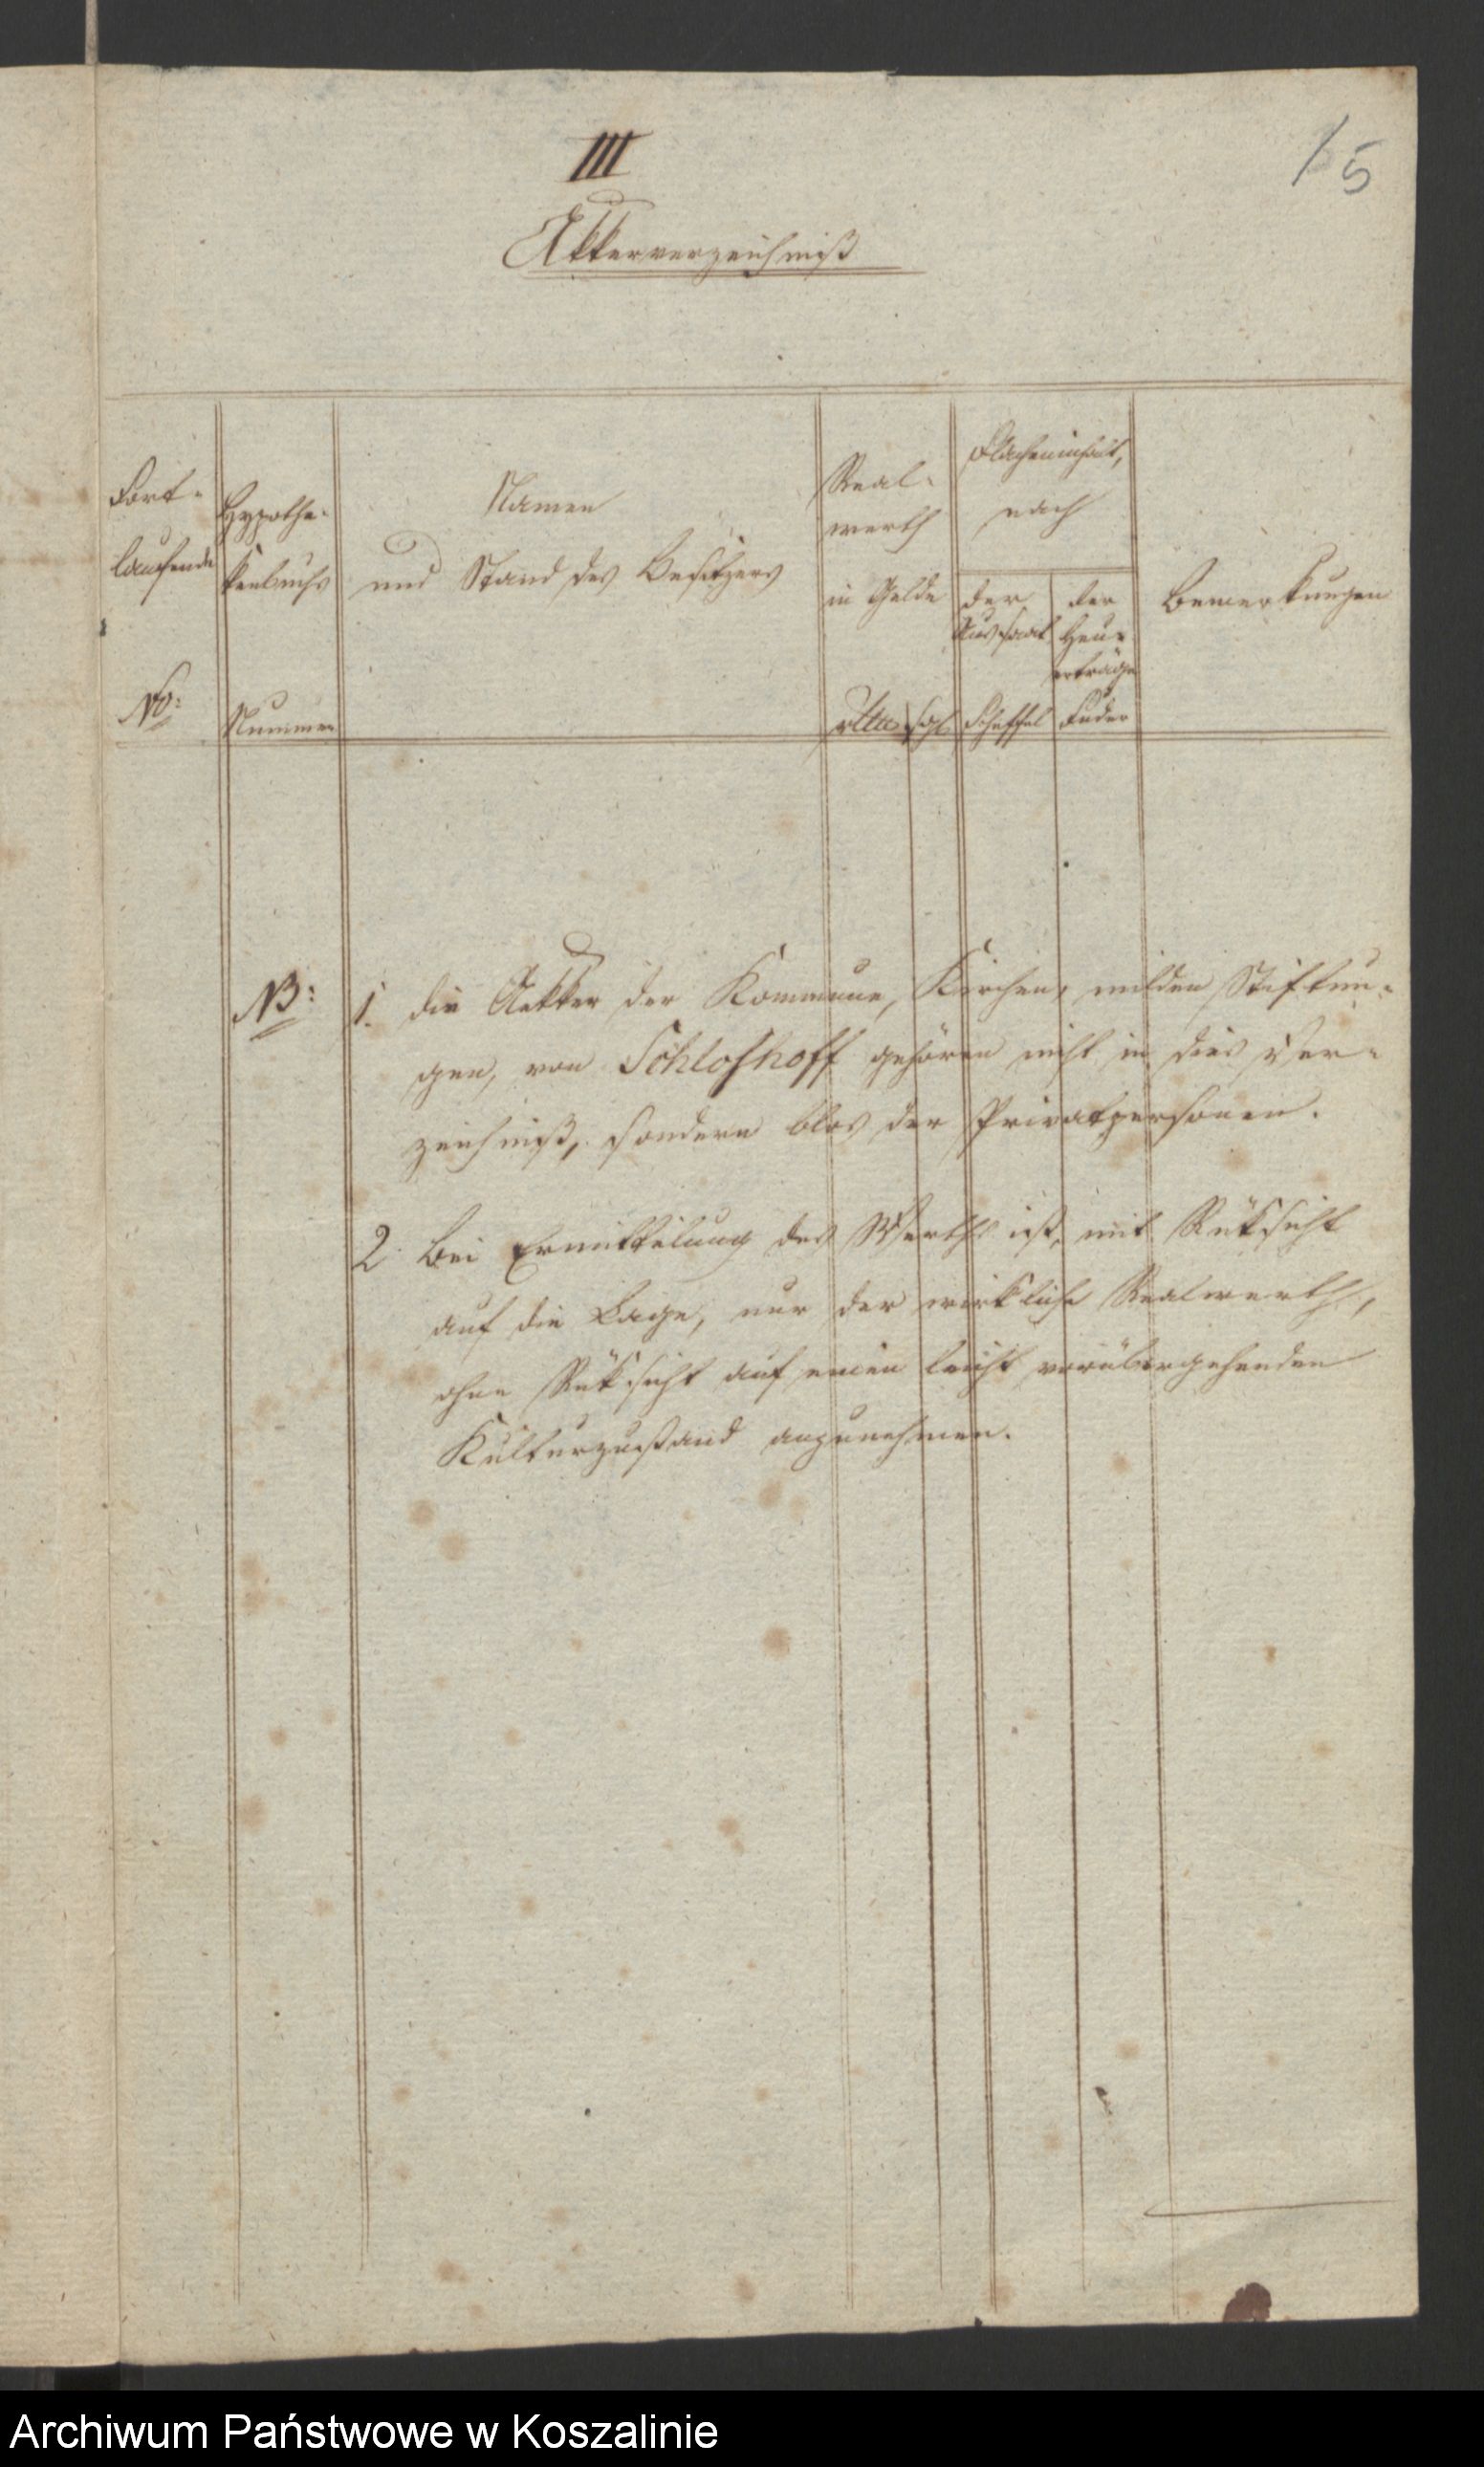 III
15
Akkerverzeichniß
Fort-
laufende
No:
Hypothe-
kenbuchs
Nummer
Namen
und Stand des Besitzers
Real-
werth
in Gelde
rtlr sgl
Flächeninhalt,
nach
der
Aussaat
Scheffel
der
Heu-
erträge
Fuder
Bemerkungen
NB:
1. die Aekker der Kommune, Kirchen, milden Stiftun-
gen, von Schloshoff gehören nicht in dies Ver-
zeichniß, sondern blos der Privatpersonen.
2. Bei Ermittelung des Werths ist, mit Rüksicht
auf die Lage, nur der wirkliche Realwerth,
ohne Rüksicht auf einen leicht vorübergehenden
Kulturzustand anzunehmen.
Archiwum Państwowe w Koszalinie